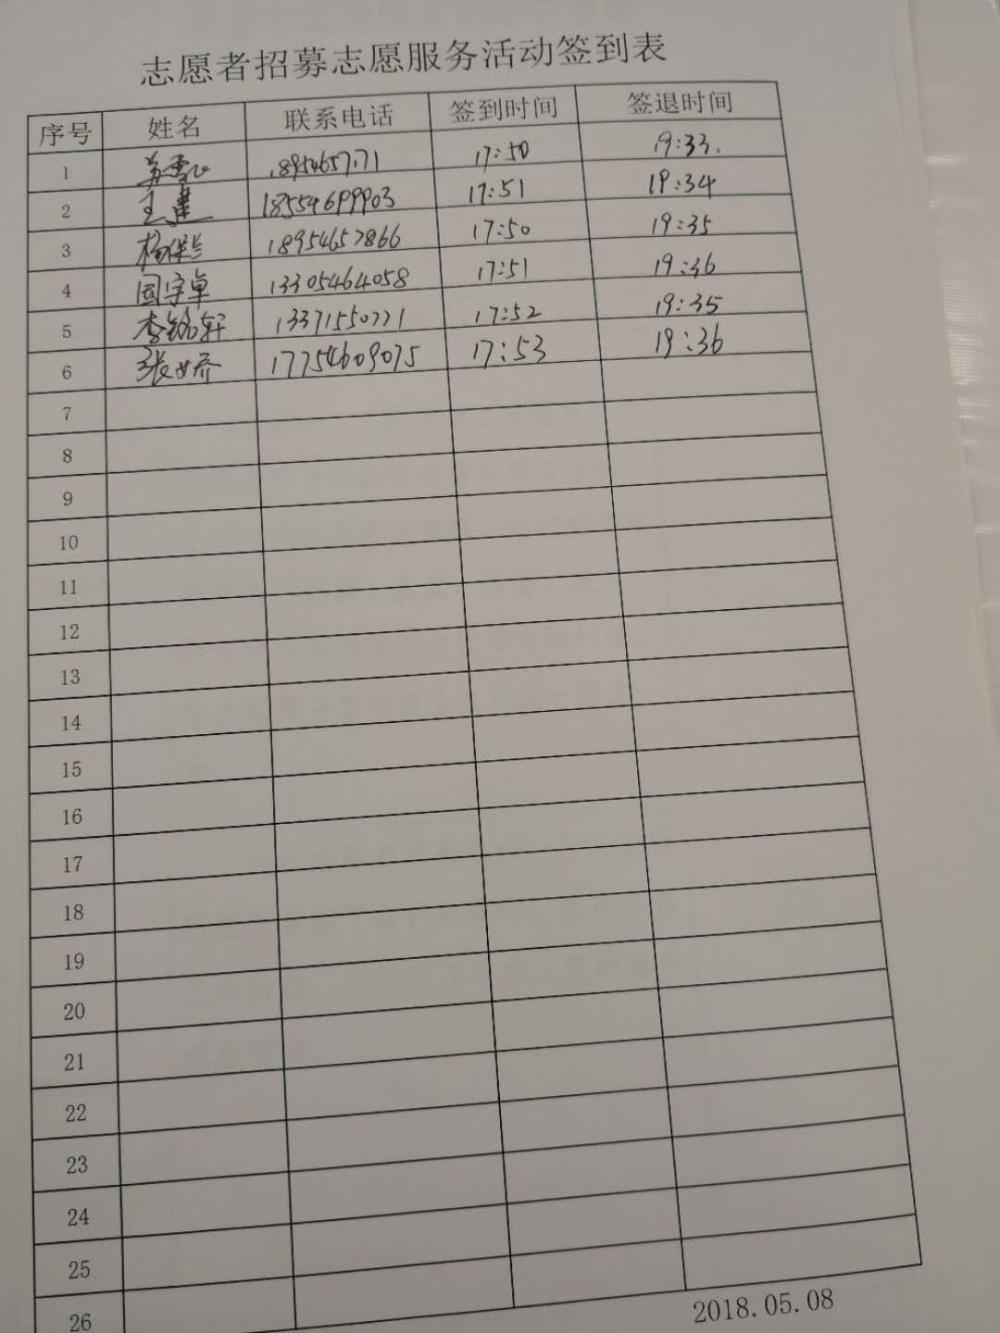 志愿者招募志愿服务活动签到表
序号 姓名 联系电话 签到时间 签退时间
1 17:50 19:33.
2 王建 18554699903 17:51 19:34
3 18954657866 17:50 19:35
4 国宇卓 13305464058 17:51 19:36
5 李铭轩 13371550771 17:52 19:35
6 张世乔 17754609075 17:53 19:36
7
8
9
10
11
12
13
14
15
16
17
18
19
20
21
22
23
24
25
26
2018.05.08